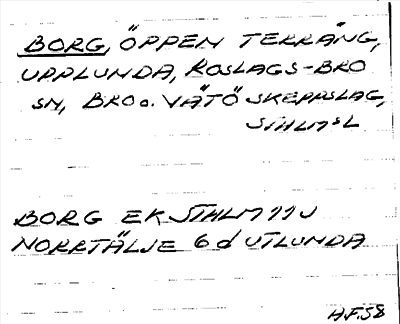 BORG, ÖPPEN TERRÄNG,
UPPLUNDA, ROSLAGS-BRO
SN, BRO o. VÄTÖ SKEPPSLAG,
STHLMSL
BORG EK STHLM 11 U
NORRTÄLJE 6 d UTLUNDA
H.F.58